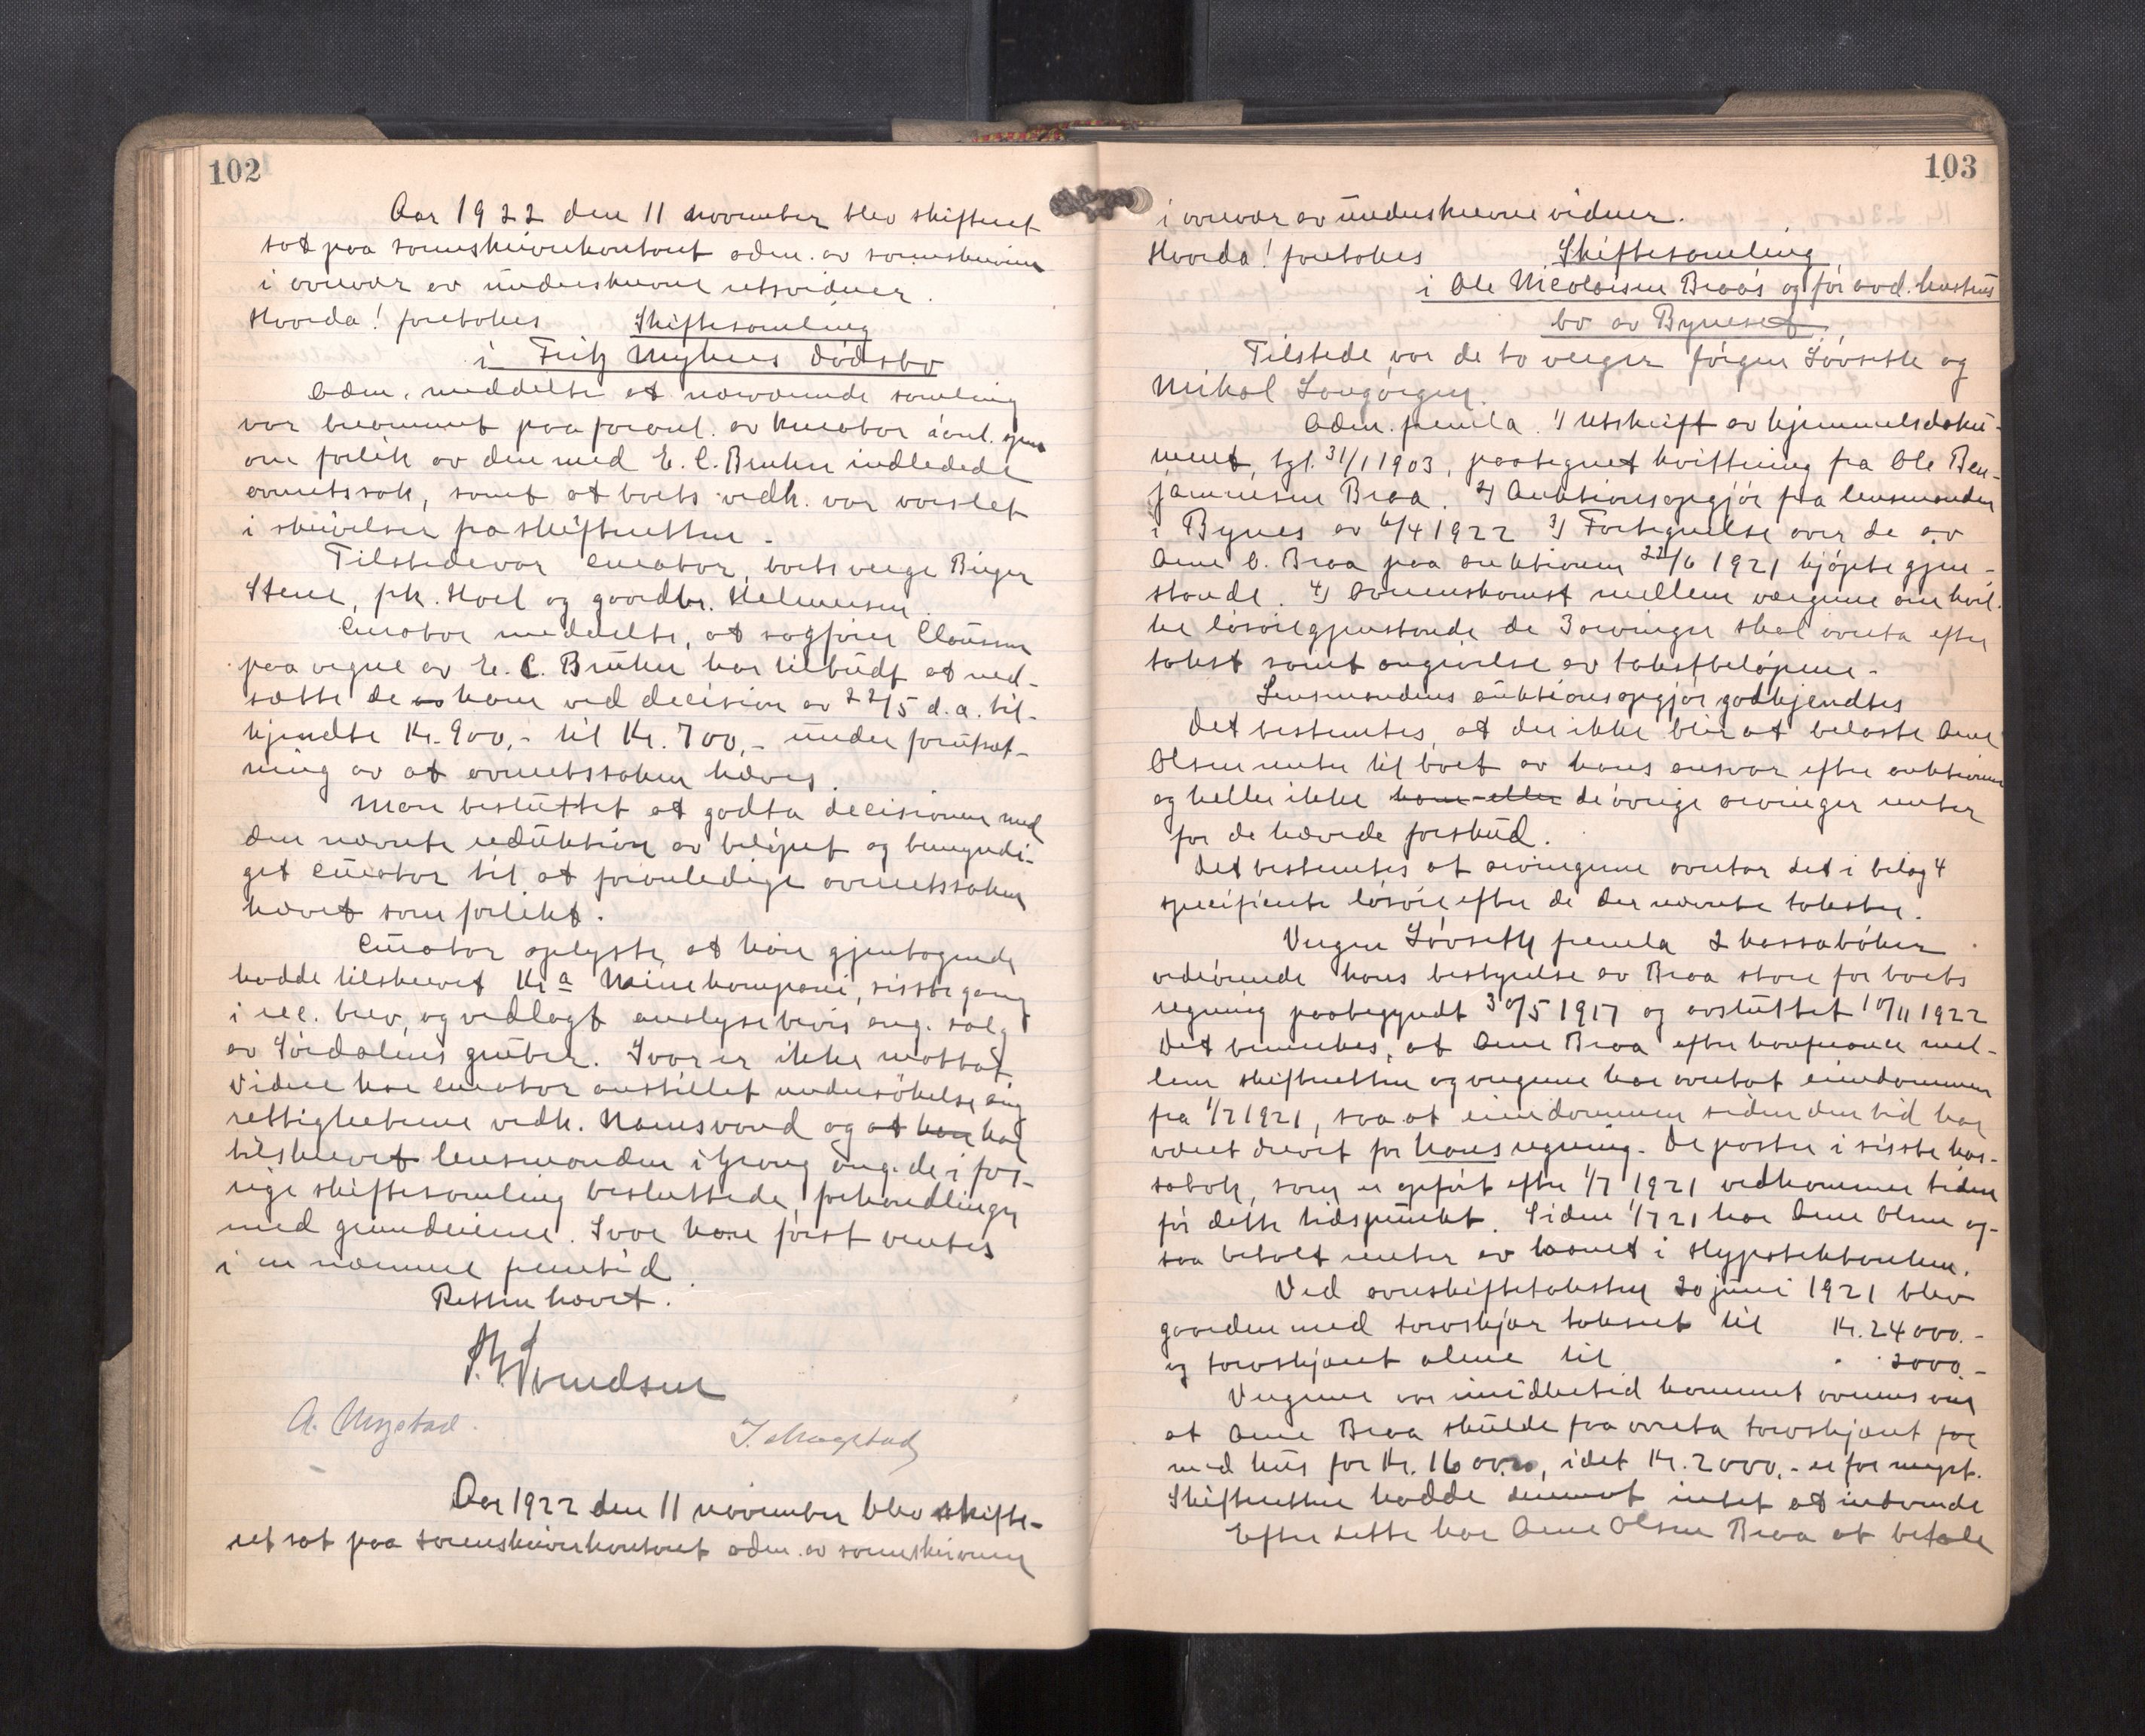 102
Aar 1922 den 11 november blev skifteret
sat paa sorenskriverkontoret adm. av sorenskriveren
i overvær av underskrevne retsvidner.
Hvorda! foretokes Skiftesamling
i Fritz Myhres dødsbo
Adm. meddelte at nærværende samling
var berammet paa foranl. av kurator aanl. spm
om forlik av den med E. C. Bruhn indledede
ovrretssak, samt at boets vedk. var varslet
i skrivelser fra skifteretten.
Tilstede var curator, boets verge Birger
Stene, frk. Hoel og gaardbr. Helmersen.
Curator meddelte, at sagfører Clausen
paa vegne av E. C. Bruhn har tilbudt at ned-
sætte de av ham ved decision av 22/5 d.a. til-
kjendte Kr. 900,- til Kr. 700,- under forutsæt-
ning av at ovrretssaken hæves.
Man besluttet at godta decisionen med
den nævnte reduktion av beløpet og bemyndi-
get curator til at foranledige ovrretssaken
hævet som forlikt.
Curator oplyste, at han gjentagende
hadde tilskrevet Kr.a Minekompani, sisste gang
i rec. brev, og vedlagt analysebevis ang. salg
av Sørdalens gruber. Svar er ikke mottat
Videre har curator anstillet undersøkelse ang
rettigheterne vedk. Namsvand og at han har
tilskrevet lensmanden i Grong ang. de i for-
rige skiftesamling besluttede forhandlinger
med grundeierne. Svar kan først ventes
i en nærmere fremtid.
Retten hævet.
A. Mygstad.
J. Mogstad
Aar 1922 den 11 november blev skifte-
ret sat paa sorenskriverkontoret adm. av sorenskriveren
103
i overvær av underskrevne vidner.
Hvorda! foretokes Skiftesamling
i Ole Nicolaisen Braas og før avd. hustrus
bo av Byneset.
Tilstede var de to verger Jørgen Løvseth og
Mikal Langørgen.
Adm. fremla. 1) Utskrift av hjemmelsdoku-
ment, tgl. 31/1 1903, paategnet kvittering fra Ole Ben-
jaminsen Braa. 2) Auktionsopgjør fra lensmanden
i Bynes av 6/4 1922 3) Fortegnelse over de av
Arne O. Braa paa auktionen 22/6 1921 kjøpte gjen-
stande. 4) Overenskomst mellem vergerne om hvil-
ke løsøregjenstande de 3 arvinger skal overta efter
takst samt angivelse av takstbeløpene.
Lensmandens auktionsopgjør godkjendtes
Det bestemtes, at der ikke blir at belaste Arne
Olsen renter til boet av hans ansvar efter auktionen
og heller ikke ham eller de øvrige arvinger renter
for de hævede forskud.
Det bestemtes at arvingerne overtar det i bilag 4
specificerte løsøre efter de der nævnte takster.
Vergen Løvseth fremla 2 kassabøker
vedrørende hans bestyrelse av Braa store for boets
regning paabegyndt 30/5 1917 og avsluttet 10/11 1922
Det bemerkes, at Arne Braa efter konferance mel-
lem skifteretten og vergerne har overtat eiendommen
fra 1/7 1921, saa at eiendommen siden den tid har
været drevet for hans regning. De poster i sisste kas-
sabok, som er opført efter 1/7 1921 vedkommer tiden
før dette tidspunkt. Siden 1/7 21 har Arne Olsen og-
saa betalt renter av laanet i Hypotekbanken.
Ved overskiftetaksten 20 juni 1921 blev
gaarden med torvskjær taksert til Kr. 24000.-
og torvskjæret alene til " 2000.-
Vergerne var imidlertid kommet overens om
at Arne Braa skulde faa overta torvskjæret
med hus for Kr. 1600.00, idet Kr. 2000.- er for meget.
Skifteretten hadde derimot intet at indvende
Efter dette har Arne Olsen Braa at betale